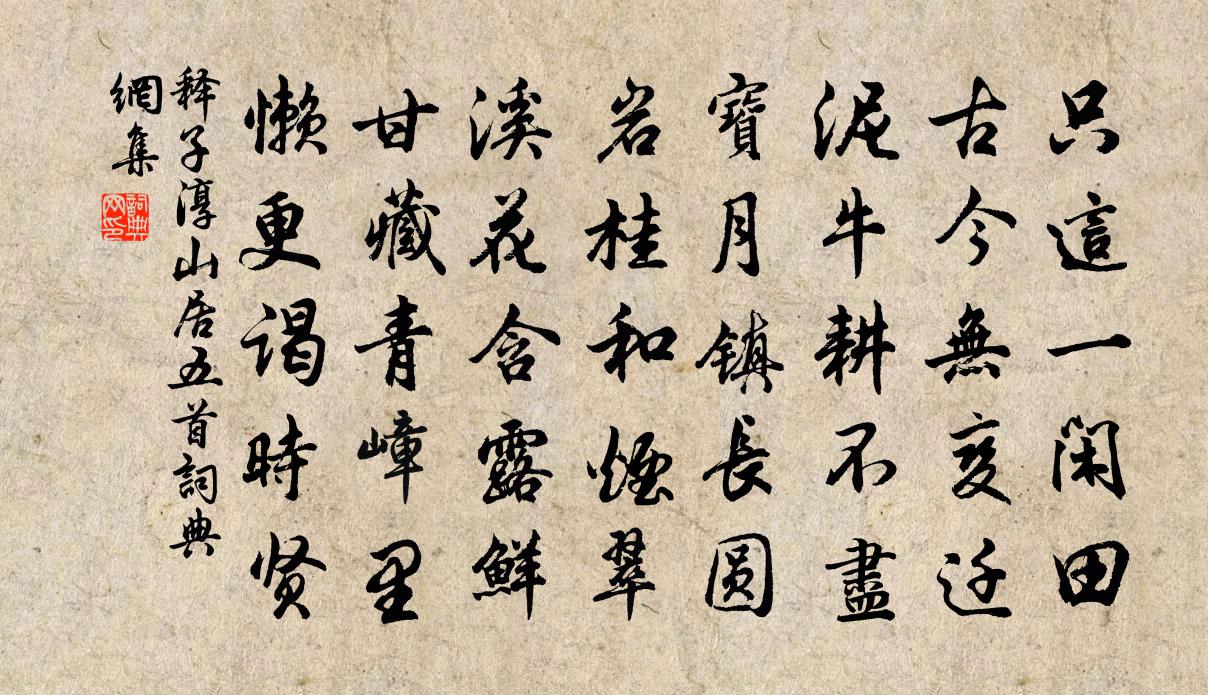 只這一闲田
古今無变迁
泥牛耕不盡
寶月镇長圆
岩桂和煙翠
溪花含露鮮
甘藏青嶂里
懒更谒時贤
释子淳山居五首詞典
網集
詞典
网印